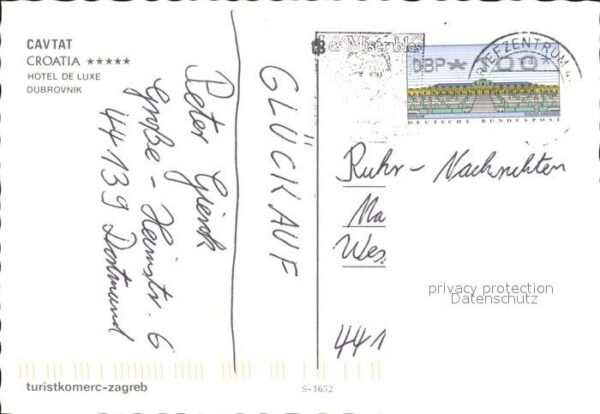 CAVTAT
CROATIA ★★★★★
HOTEL DE LUXE
DUBROVNIK
Peter
Große - Heimstr. 6
44139 Dortmund
GLÜCKAUF
Les Misérables
DBP * 100 *
DEUTSCHE BUNDESPOST
EFZENTRUM 4
Ruhr - Nachrichten
Ma
Wes
441
privacy protection
Datenschutz
turistkomerc-zagreb
S-1652